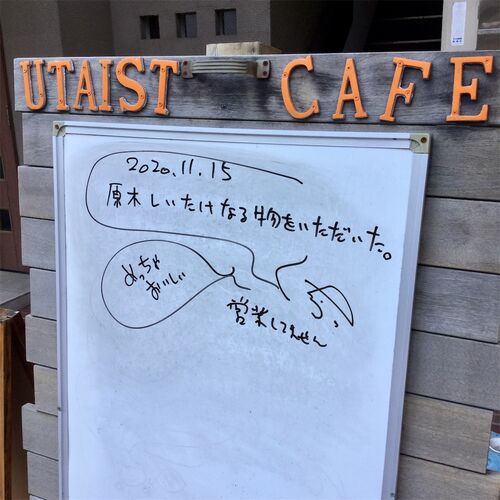 UTAIST CAFE
2020.11.15
原木しいたけなる物をいただいた。
めっちゃ
おいしい
営業してません